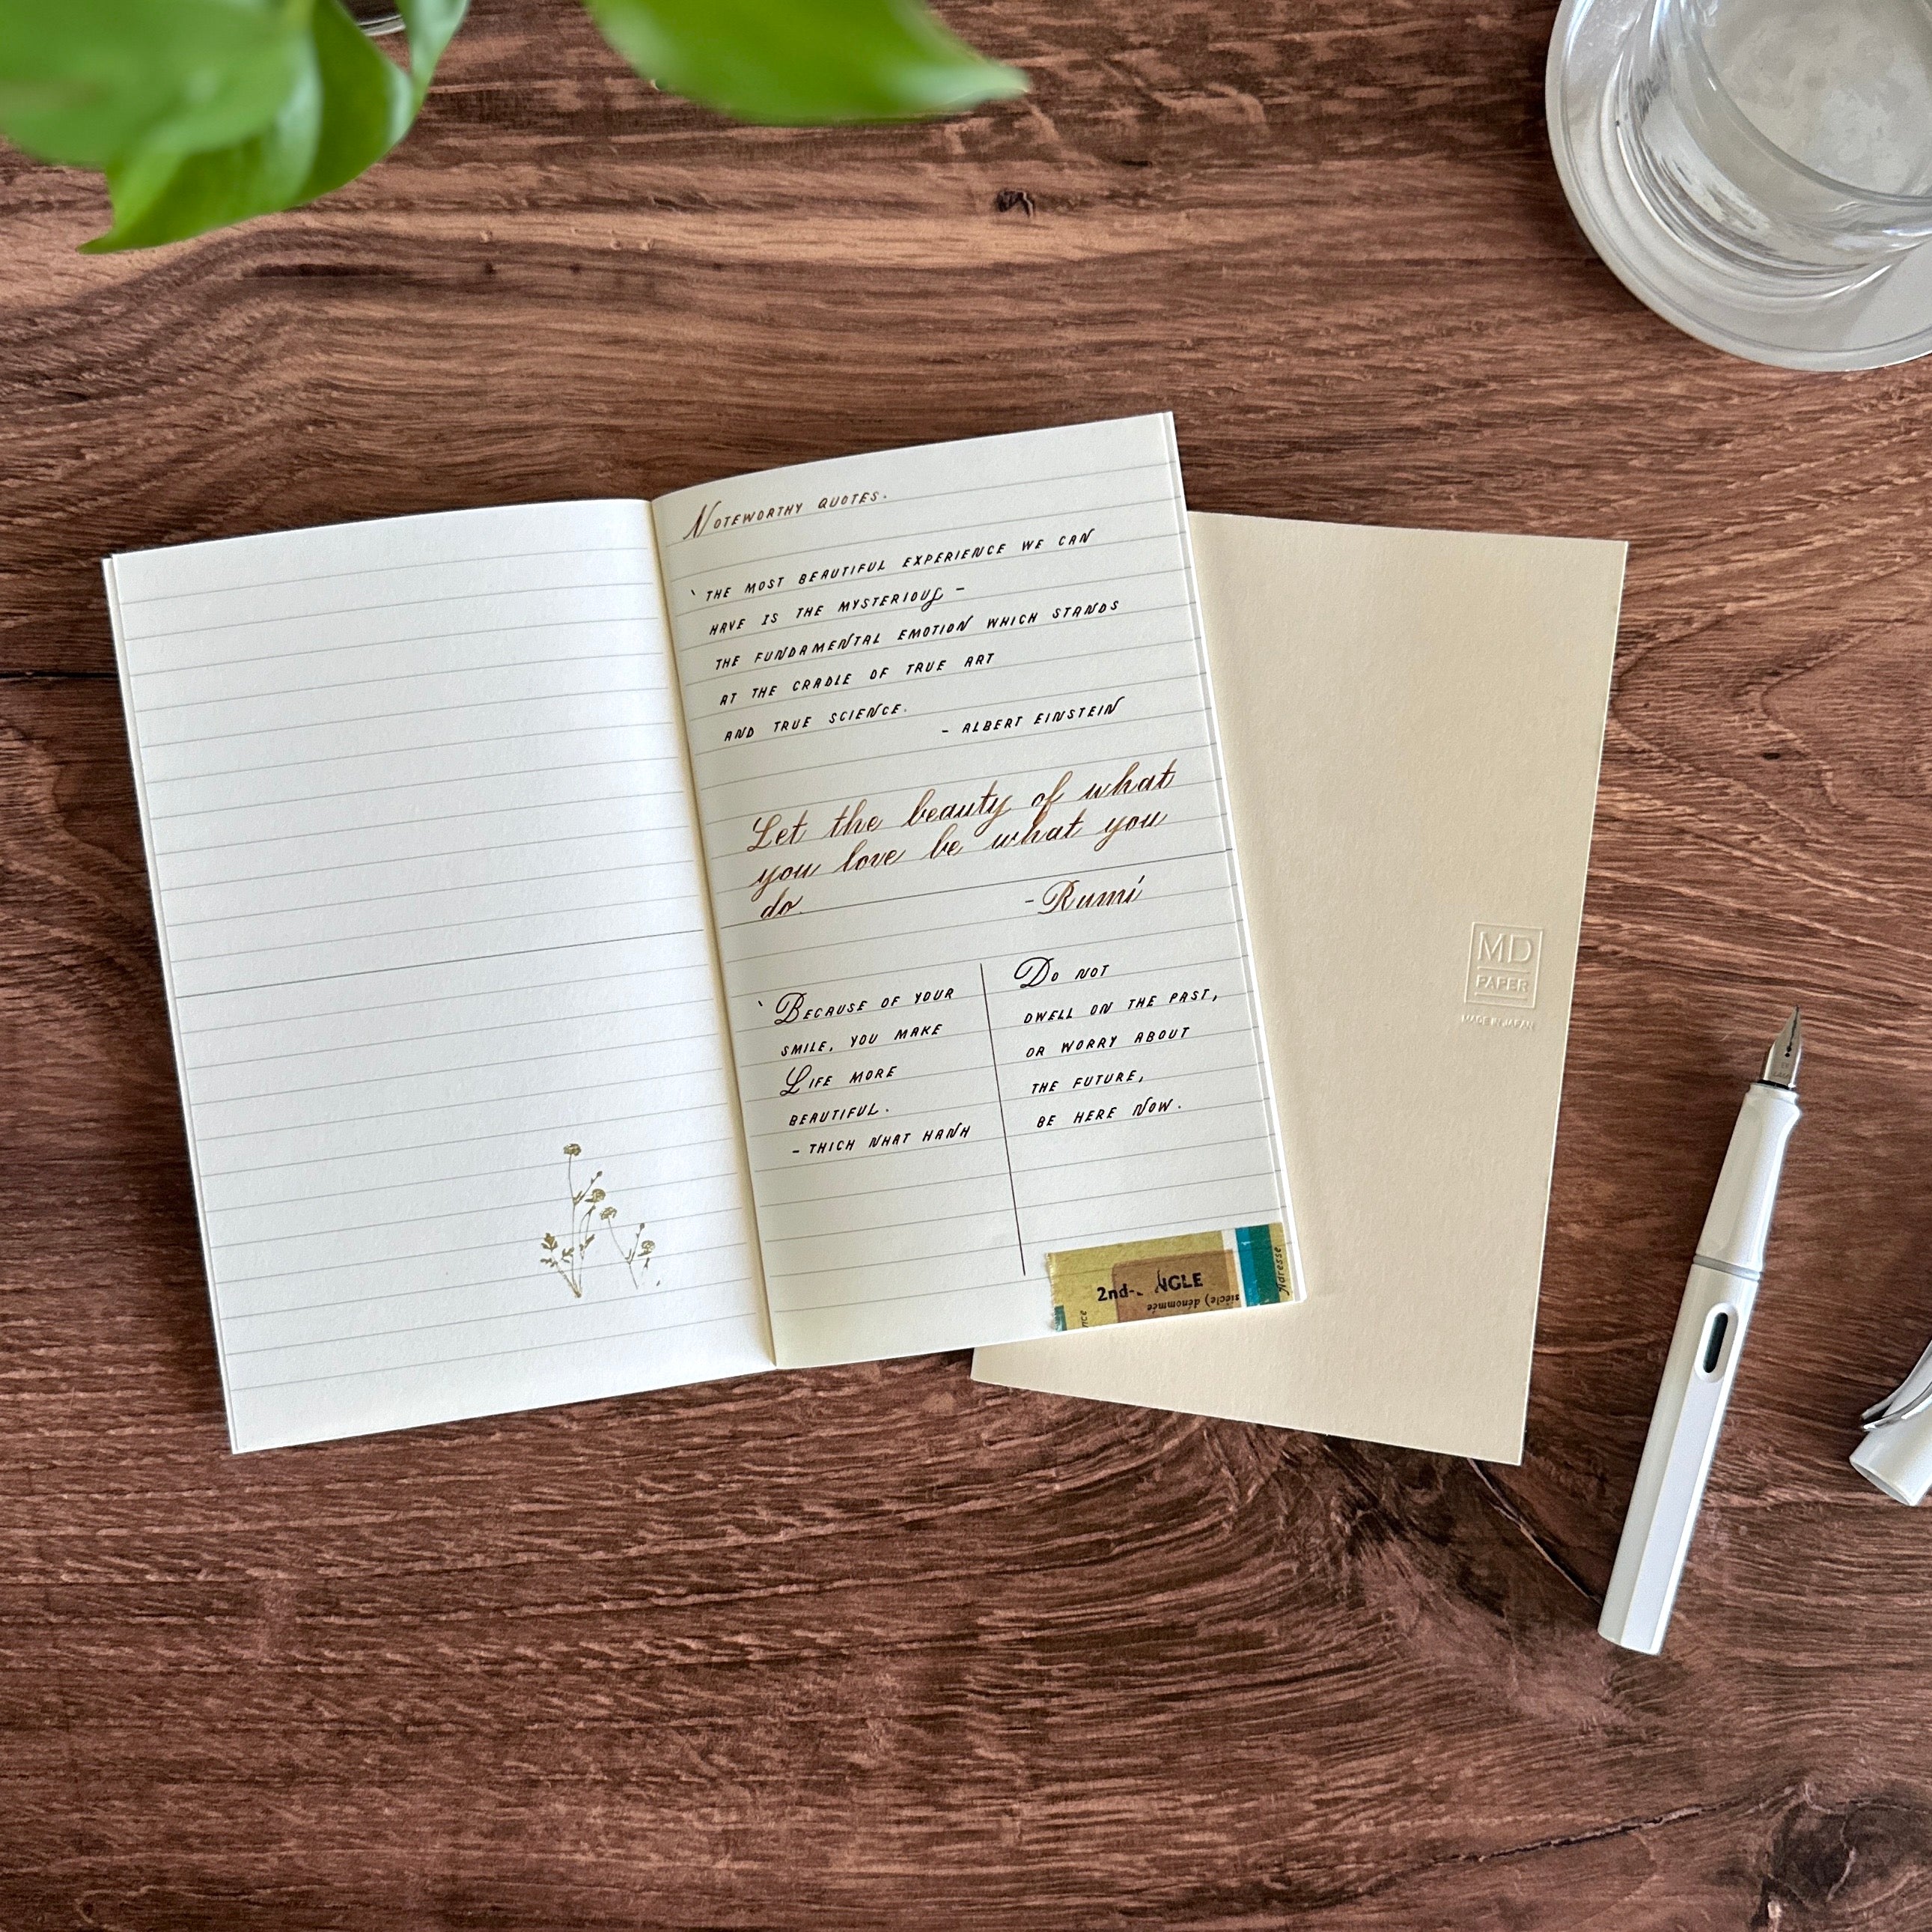 Noteworthy quotes.
‵the most beautiful experience we can
have is the mysterious –
the fundamental emotion which stands
at the cradle of true art
and true science.
– Albert Einstein
Let the beauty of what
you love be what you
do.
-Rumi
‵Because of your
smile, you make
Life more
beautiful.
– Thich Nhat Hanh
Do not
dwell on the past,
or worry about
the future,
be here now.
2nd-
siècle) dénommée
Adresse
nce
MD
PAPER
MADE IN JAPAN